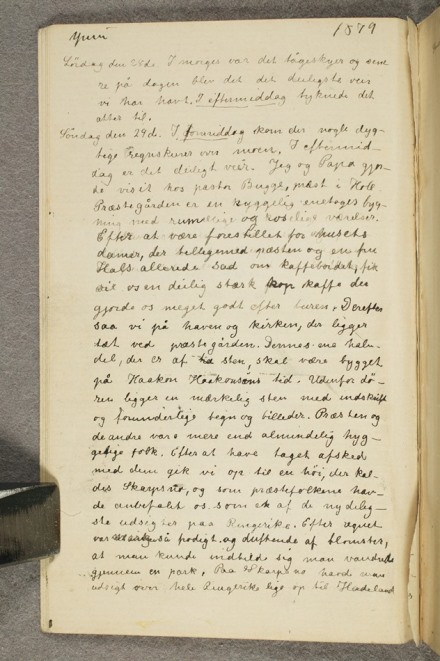 Juni 1879
Lördag den 28de. I morges var det tågeskyer og sene
re på dagen blev det det deiligste veir
vi har havt. I eftermeddag tyknede det
atter til.
Söndag den 29d. I formiddag kom der nogle dyg-
tige Regnskurer over moen. I eftermid-
dag er det deiligt veir. Jeg og Papa gjor-
de visit hos pastor Bugge, præst i Hole
Præstegården er en hyggelig enetages byg-
ning med rummelige og koselige værelser.
Efter at være forestillet for husets
damer, der tilligemed præsten og en fru
Hals allerede sad om kaffebordet, fik
vi os en deilig stærk kop kaffe der
gjorde os meget godt efter turen. Derefter
saa vi på haven og kirken, der ligger
tæt ved præstegården. Dennes ene halv-
del, der er af sten, skal være bygget
på Haakon Haakonsöns tid. Udenfor dö-
ren ligger en mærkelig sten med indskrift
og forunderlige tegn og billeder. Præsten og
de andre vare mere end almindelig hyg-
gelige folk. Efter at have taget afsked
med dem gik vi op til en höi, der kal-
des Skarpsno, og som præstefolkene hav-
de anbefalet os som et af de nydelig-
ste udsigter paa Ringerike. Efter regnet
var så frodigt og duftende af blomster,
at man kunde indbilde sig man vandrede
gjennem en park. Paa Skarpsno havde man
udsigt over hele Ringerike lige op til Hadeland